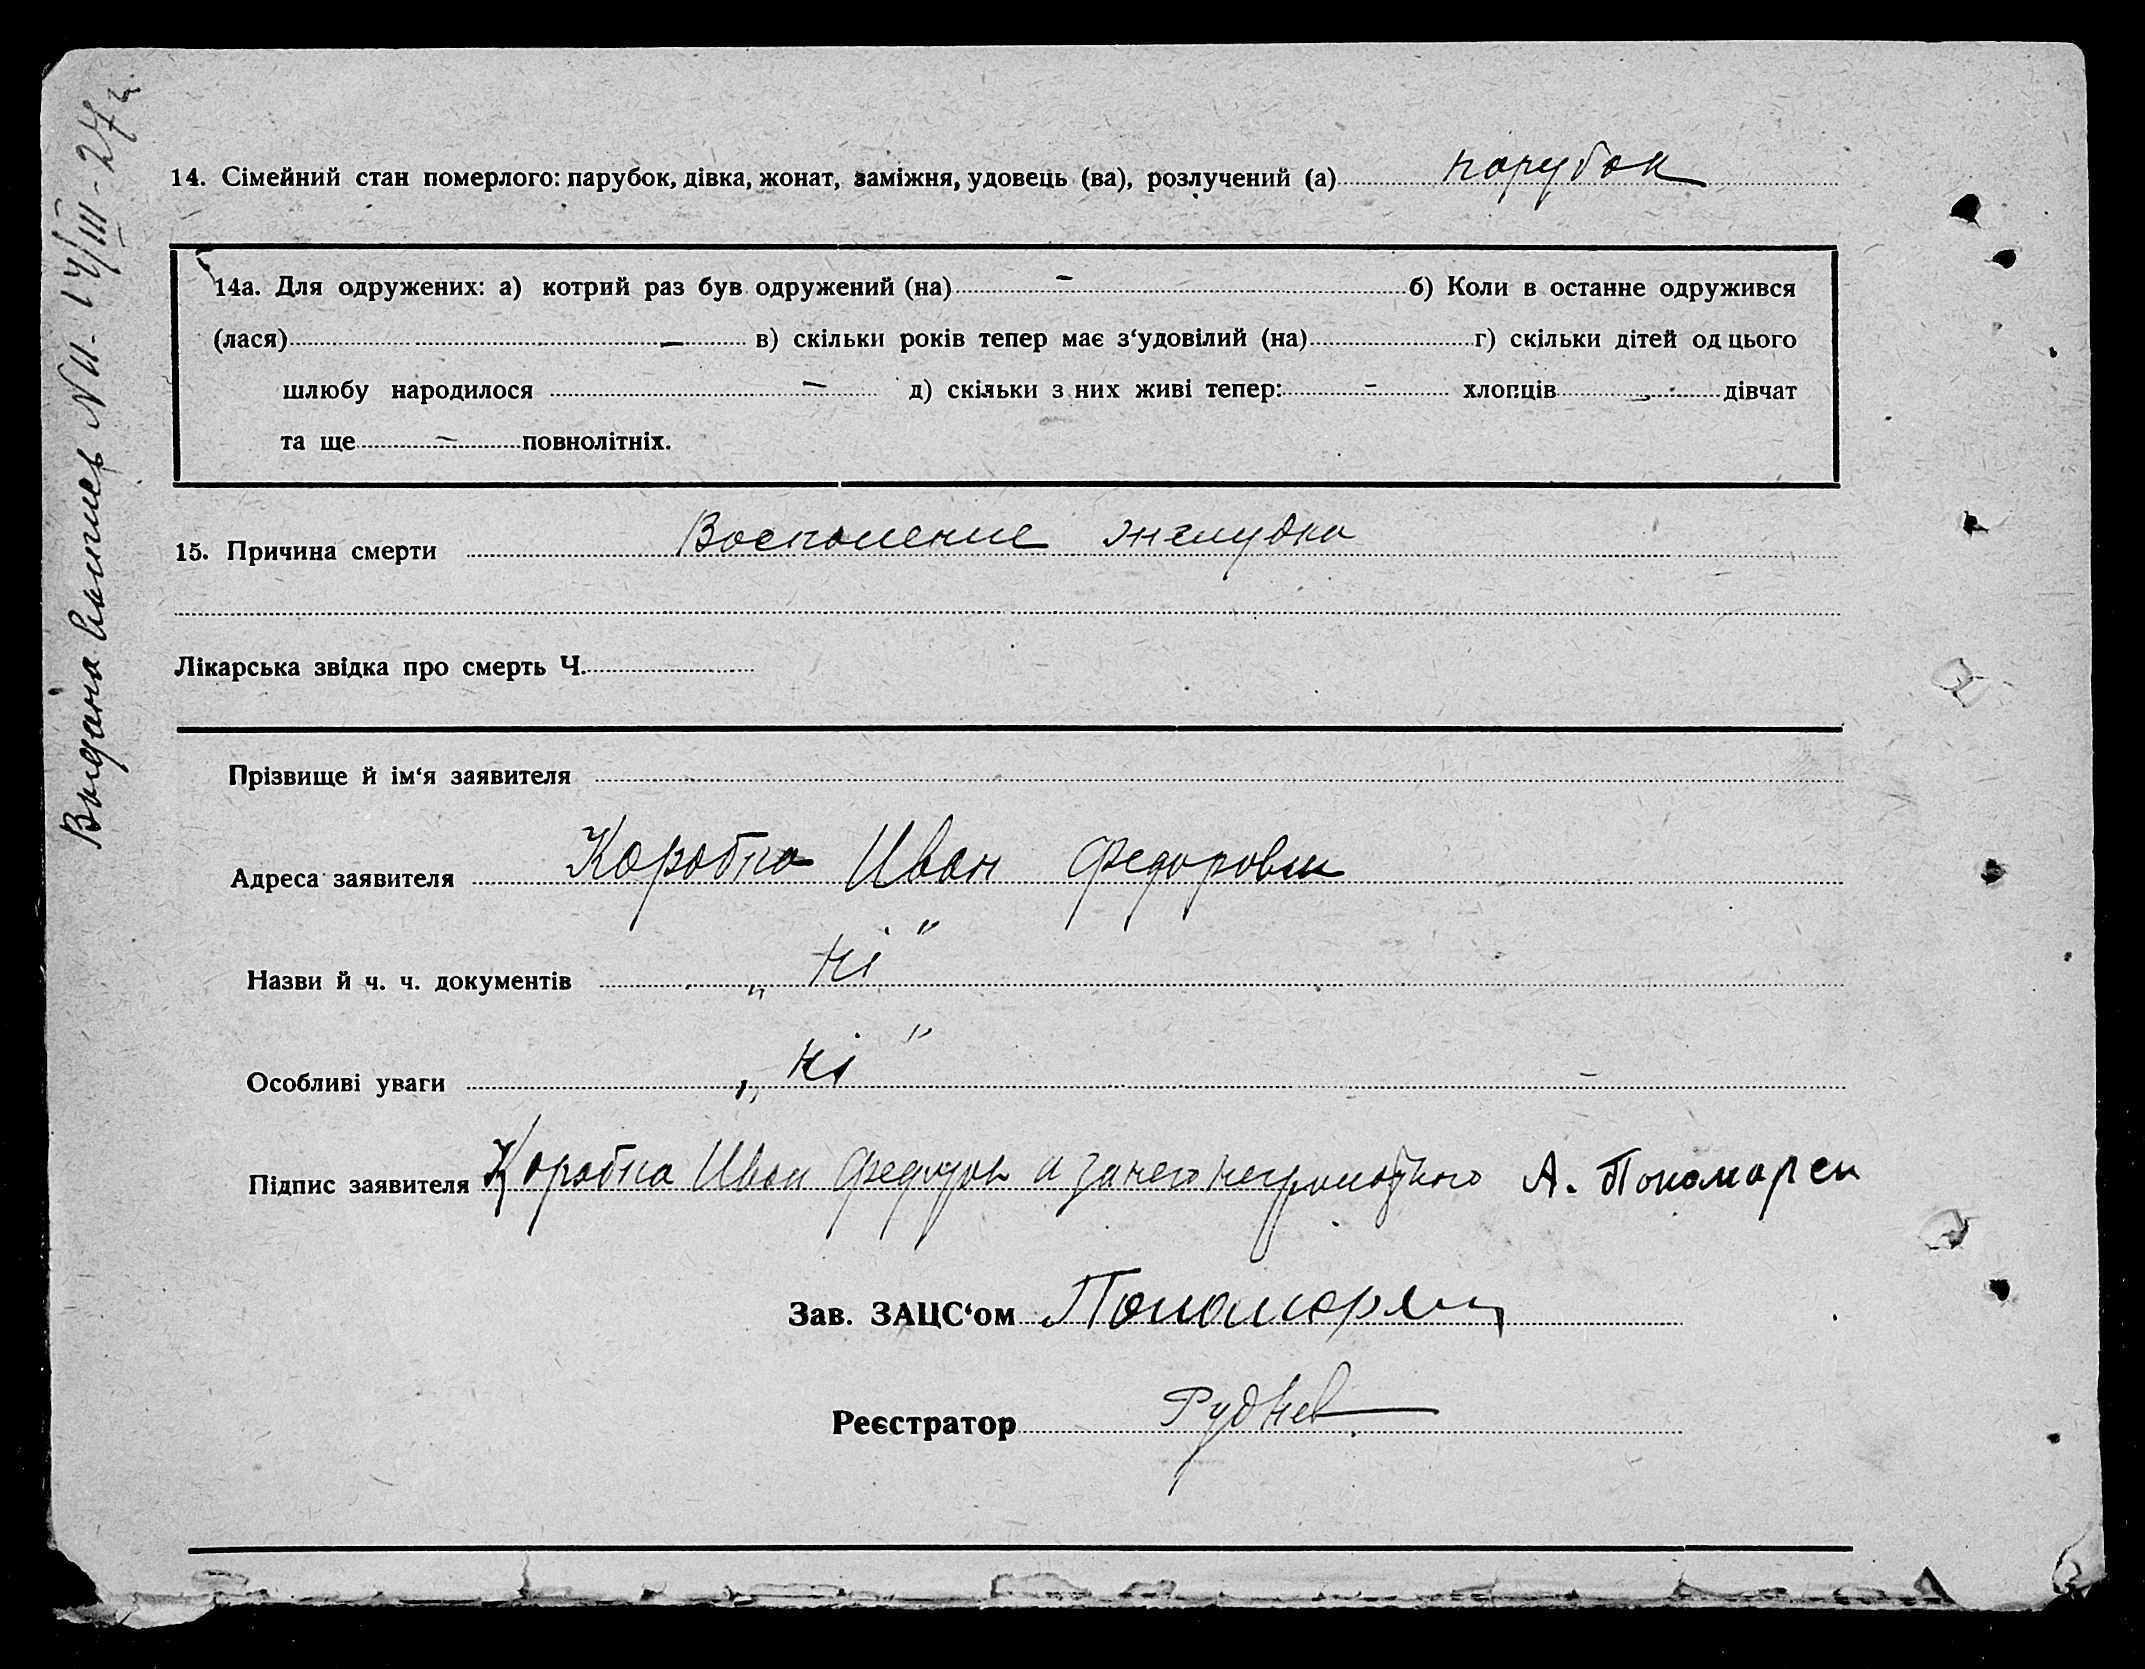 Выдана Выпись № 11 - 17/III - 27 г.
14. Сімейний стан померлого: парубок, дівка, жонат, заміжня, удовець (ва), розлучений (а) парубок
14а. Для одружених: а) котрий раз був одружений (на) – б) Коли в останнє одружився
(лася) – в) скільки років тепер має з‘удовілий (на) г) скільки дітей од цього
шлюбу народилося – д) скільки з них живі тепер: – хлопців – дівчат
та ще – повнолітніх.
15. Причина смерти Воспаление желудка
Лікарська звідка про смерть Ч.
Прізвище й ім‘я заявителя
Адреса заявителя Коробка Иван Федорович
Назви й ч. ч. документів „ні“
Особливі уваги „ні“ –
Підпис заявителя Коробка Иван Федоров а за него неграмотного А. Пономарен
Зав. ЗАЦС‘ом
Реєстратор Руднев